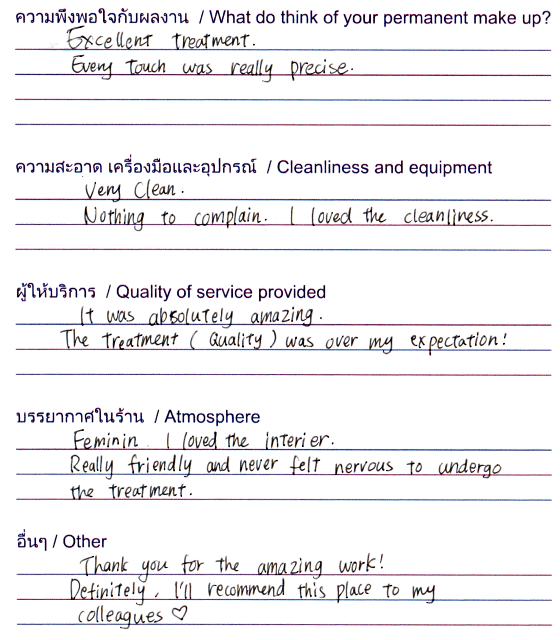 ความพึงพอใจกับผลงาน / What do think of your permanent make up?
Excellent treatment.
Every touch was really precise.
ความสะอาด เครื่องมือและอุปกรณ์ / Cleanliness and equipment
Very Clean.
Nothing to complain. I loved the cleanliness.
ผู้ให้บริการ / Quality of service provided
It was absolutely amazing.
The treatment (Quality) was over my expectation!
บรรยากาศในร้าน / Atmosphere
Feminin. I loved the interier.
Really friendly and never felt nervous to undergo
the treatment.
อื่นๆ / Other
Thank you for the amazing work!
Definitely, I'll recommend this place to my
colleagues ♡